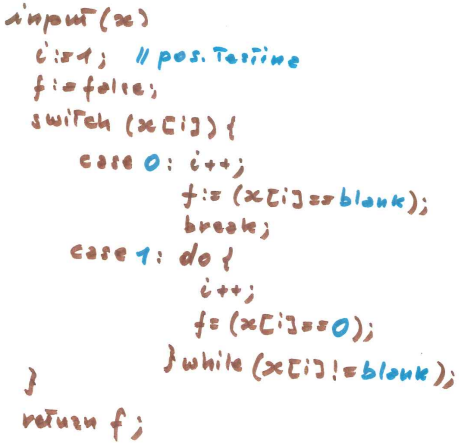 input(x)
i:=1; // pos. Testina
f:=false;
switch (x[i]) {
case 0: i++;
f:= (x[i]==blank);
break;
case 1: do {
i++;
f=(x[i]==0);
} while (x[i]!=blank);
}
return f;